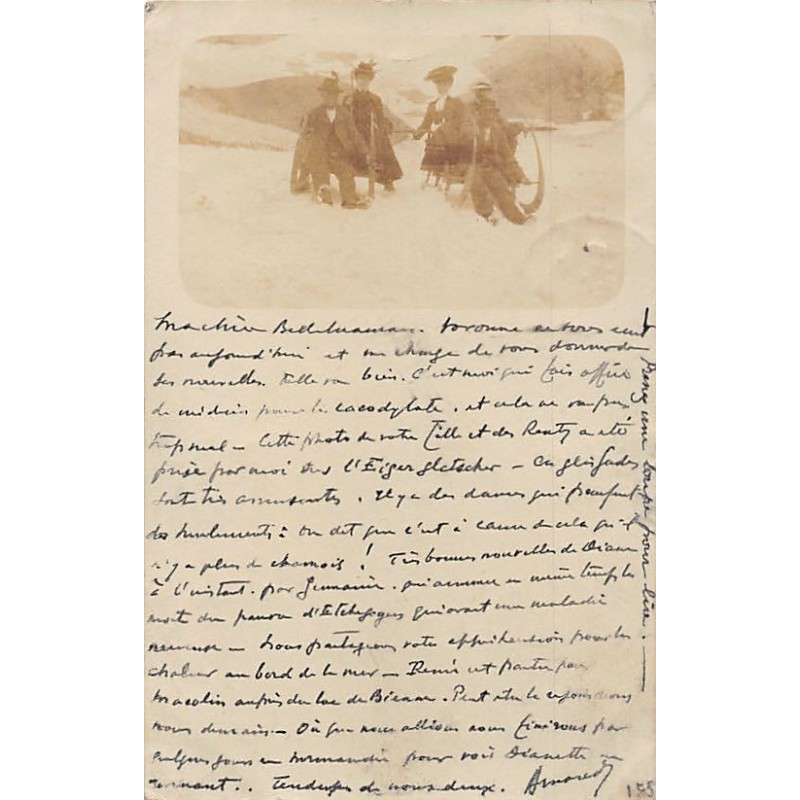 Ma chère Bellemaman. ne vous écrit
pas aujourd'hui et me charge de vous donner de
ses nouvelles. Elle va bien. C'est moi qui fais office
de médecin pour le cacodylate. et cela ne va pas
trop mal – Cette photo de votre fille et des Rentz a été
prise par moi sur l'Eigergletscher – Ces glissades
sont très amusantes. Il y a des dames qui poussent
des hurlements : on dit que c'est à cause de cela qu'il
n'y a plus de chamois ! Très bonnes nouvelles de Diane
à l'instant. par Germaine. qui annonce en même temps la
mort du pauvre d'Etchegoyen qui avait une maladie
nerveuse – Nous partageons votre appréhension pour la
chaleur au bord de la mer – René est partie pour
Macolin auprès du lac de Bienne. Peut être la rejoindrons
nous demain – Où que nous allions nous finirons par
quelques jours en Normandie pour voir Dianette en
. Tendresses de nous deux.
Prenez une loupe pour lire.
155